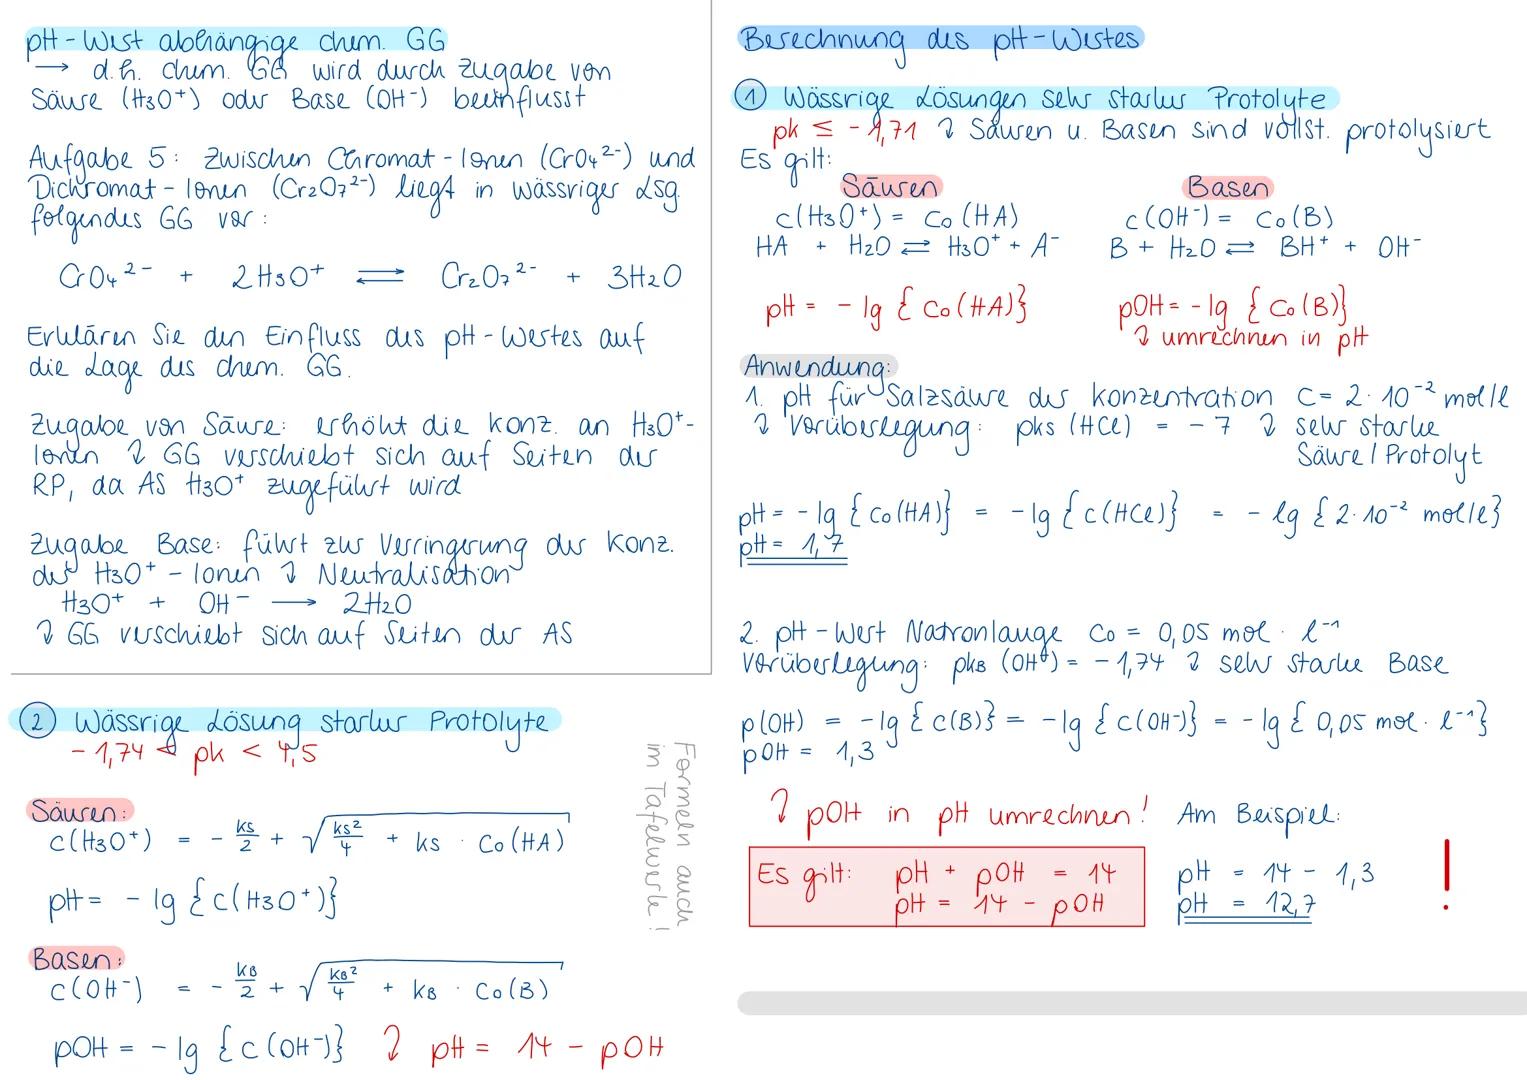 pH-Wert abhängige chem. GG
→ d.h. chem. GG wird durch Zugabe von
Säure (H3O+) oder Base (OH-) beeinflusst
Aufgabe 5: Zwischen Chromat-Ionen (CrO4 2-) und
Dichromat-Ionen (Cr2O7 2-) liegt in wässriger Lsg.
folgendes GG vor:
CrO4 2- + 2H3O+ ⇌ Cr2O7 2- + 3H2O
Erklären Sie den Einfluss des pH-Wertes auf
die Lage des chem. GG.
Zugabe von Säure: erhöht die Konz. an H3O+-
Ionen ↷ GG verschiebt sich auf Seiten der
RP, da AS H3O+ zugeführt wird
Zugabe Base: führt zur Verringerung der Konz.
der H3O+-Ionen ↷ Neutralisation
H3O+ + OH- → 2H2O
↷ GG verschiebt sich auf Seiten der AS
② Wässrige Lösung starker Protolyte
-1,74 < pk < 4,5
Säuren:
c(H3O+) = - ks/2 + √(ks²/4 + ks · Co(HA))
pH = -lg {c(H3O+)}
Basen:
c(OH-) = - kB/2 + √(kB²/4 + kB · Co(B))
pOH = -lg {c(OH-)} ↷ pH = 14 - pOH
Formeln auch
im Tafelwerk!
Berechnung des pH-Wertes
① Wässrige Lösungen sehr starker Protolyte
pk ≤ -1,71 ↷ Säuren u. Basen sind vollst. protolysiert
Es gilt:
Säuren Basen
c(H3O+) = Co(HA) c(OH-) = Co(B)
HA + H2O ⇌ H3O+ + A- B + H2O ⇌ BH+ + OH-
pH = -lg {Co(HA)} pOH = -lg {Co(B)}
↷ umrechnen in pH
Anwendung:
1. pH für Salzsäure der Konzentration C = 2·10⁻² mol/l
↷ Vorüberlegung: pks (HCl) = -7 ↷ sehr starke
Säure/Protolyt
pH = -lg {Co(HA)} = -lg {c(HCl)} = -lg {2·10⁻² mol/l}
pH = 1,7
2. pH-Wert Natronlauge Co = 0,05 mol · l⁻¹
Vorüberlegung: pkB (OH-) = -1,74 ↷ sehr starke Base
p(OH) = -lg {c(B)} = -lg {c(OH-)} = -lg {0,05 mol · l⁻¹}
pOH = 1,3
↷ pOH in pH umrechnen! Am Beispiel:
Es gilt: pH + pOH = 14
pH = 14 - pOH
pH = 14 - 1,3
pH = 12,7
!